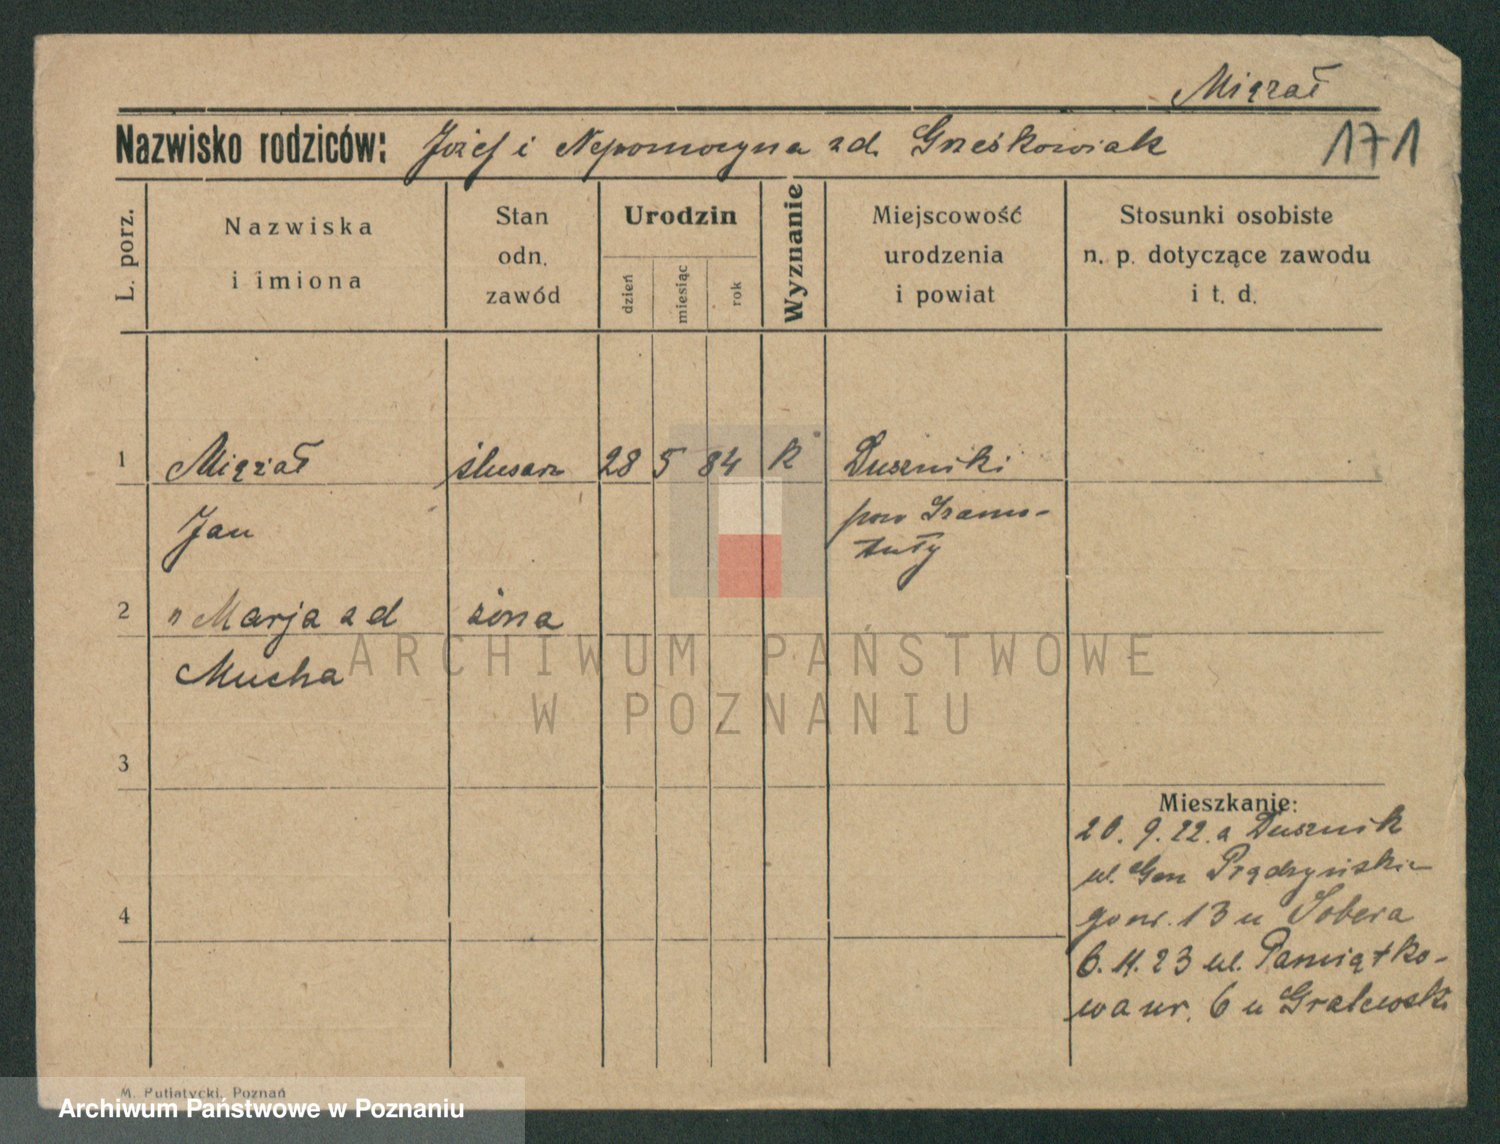 Miązał
Nazwisko rodziców: Józef i Nepomocyna zd. Grześkowiak
171
L. porz.
Nazwiska
i imiona
Stan
odn.
zawód
Urodzin
dzień
miesiąc
rok
Wyznanie
Miejscowość
urodzenia
i powiat
Stosunki osobiste
n. p. dotyczące zawodu
i t. d.
1 Miązał ślusarz 28 5 84 k Duszniki
Jan pow Szamo-
tuły
2 " Marja zd żona
Mucha
ARCHIWUM PAŃSTWOWE
W POZNANIU
3
Mieszkanie:
20. 9. 22. a Dusznik
ul. Gen Prądzyńskie
go nr. 13 u Sobera
4
6. 11. 23 ul. Pamiątko-
wa nr. 6 u Gralewski
M. Putiatycki, Poznań
Archiwum Państwowe w Poznaniu